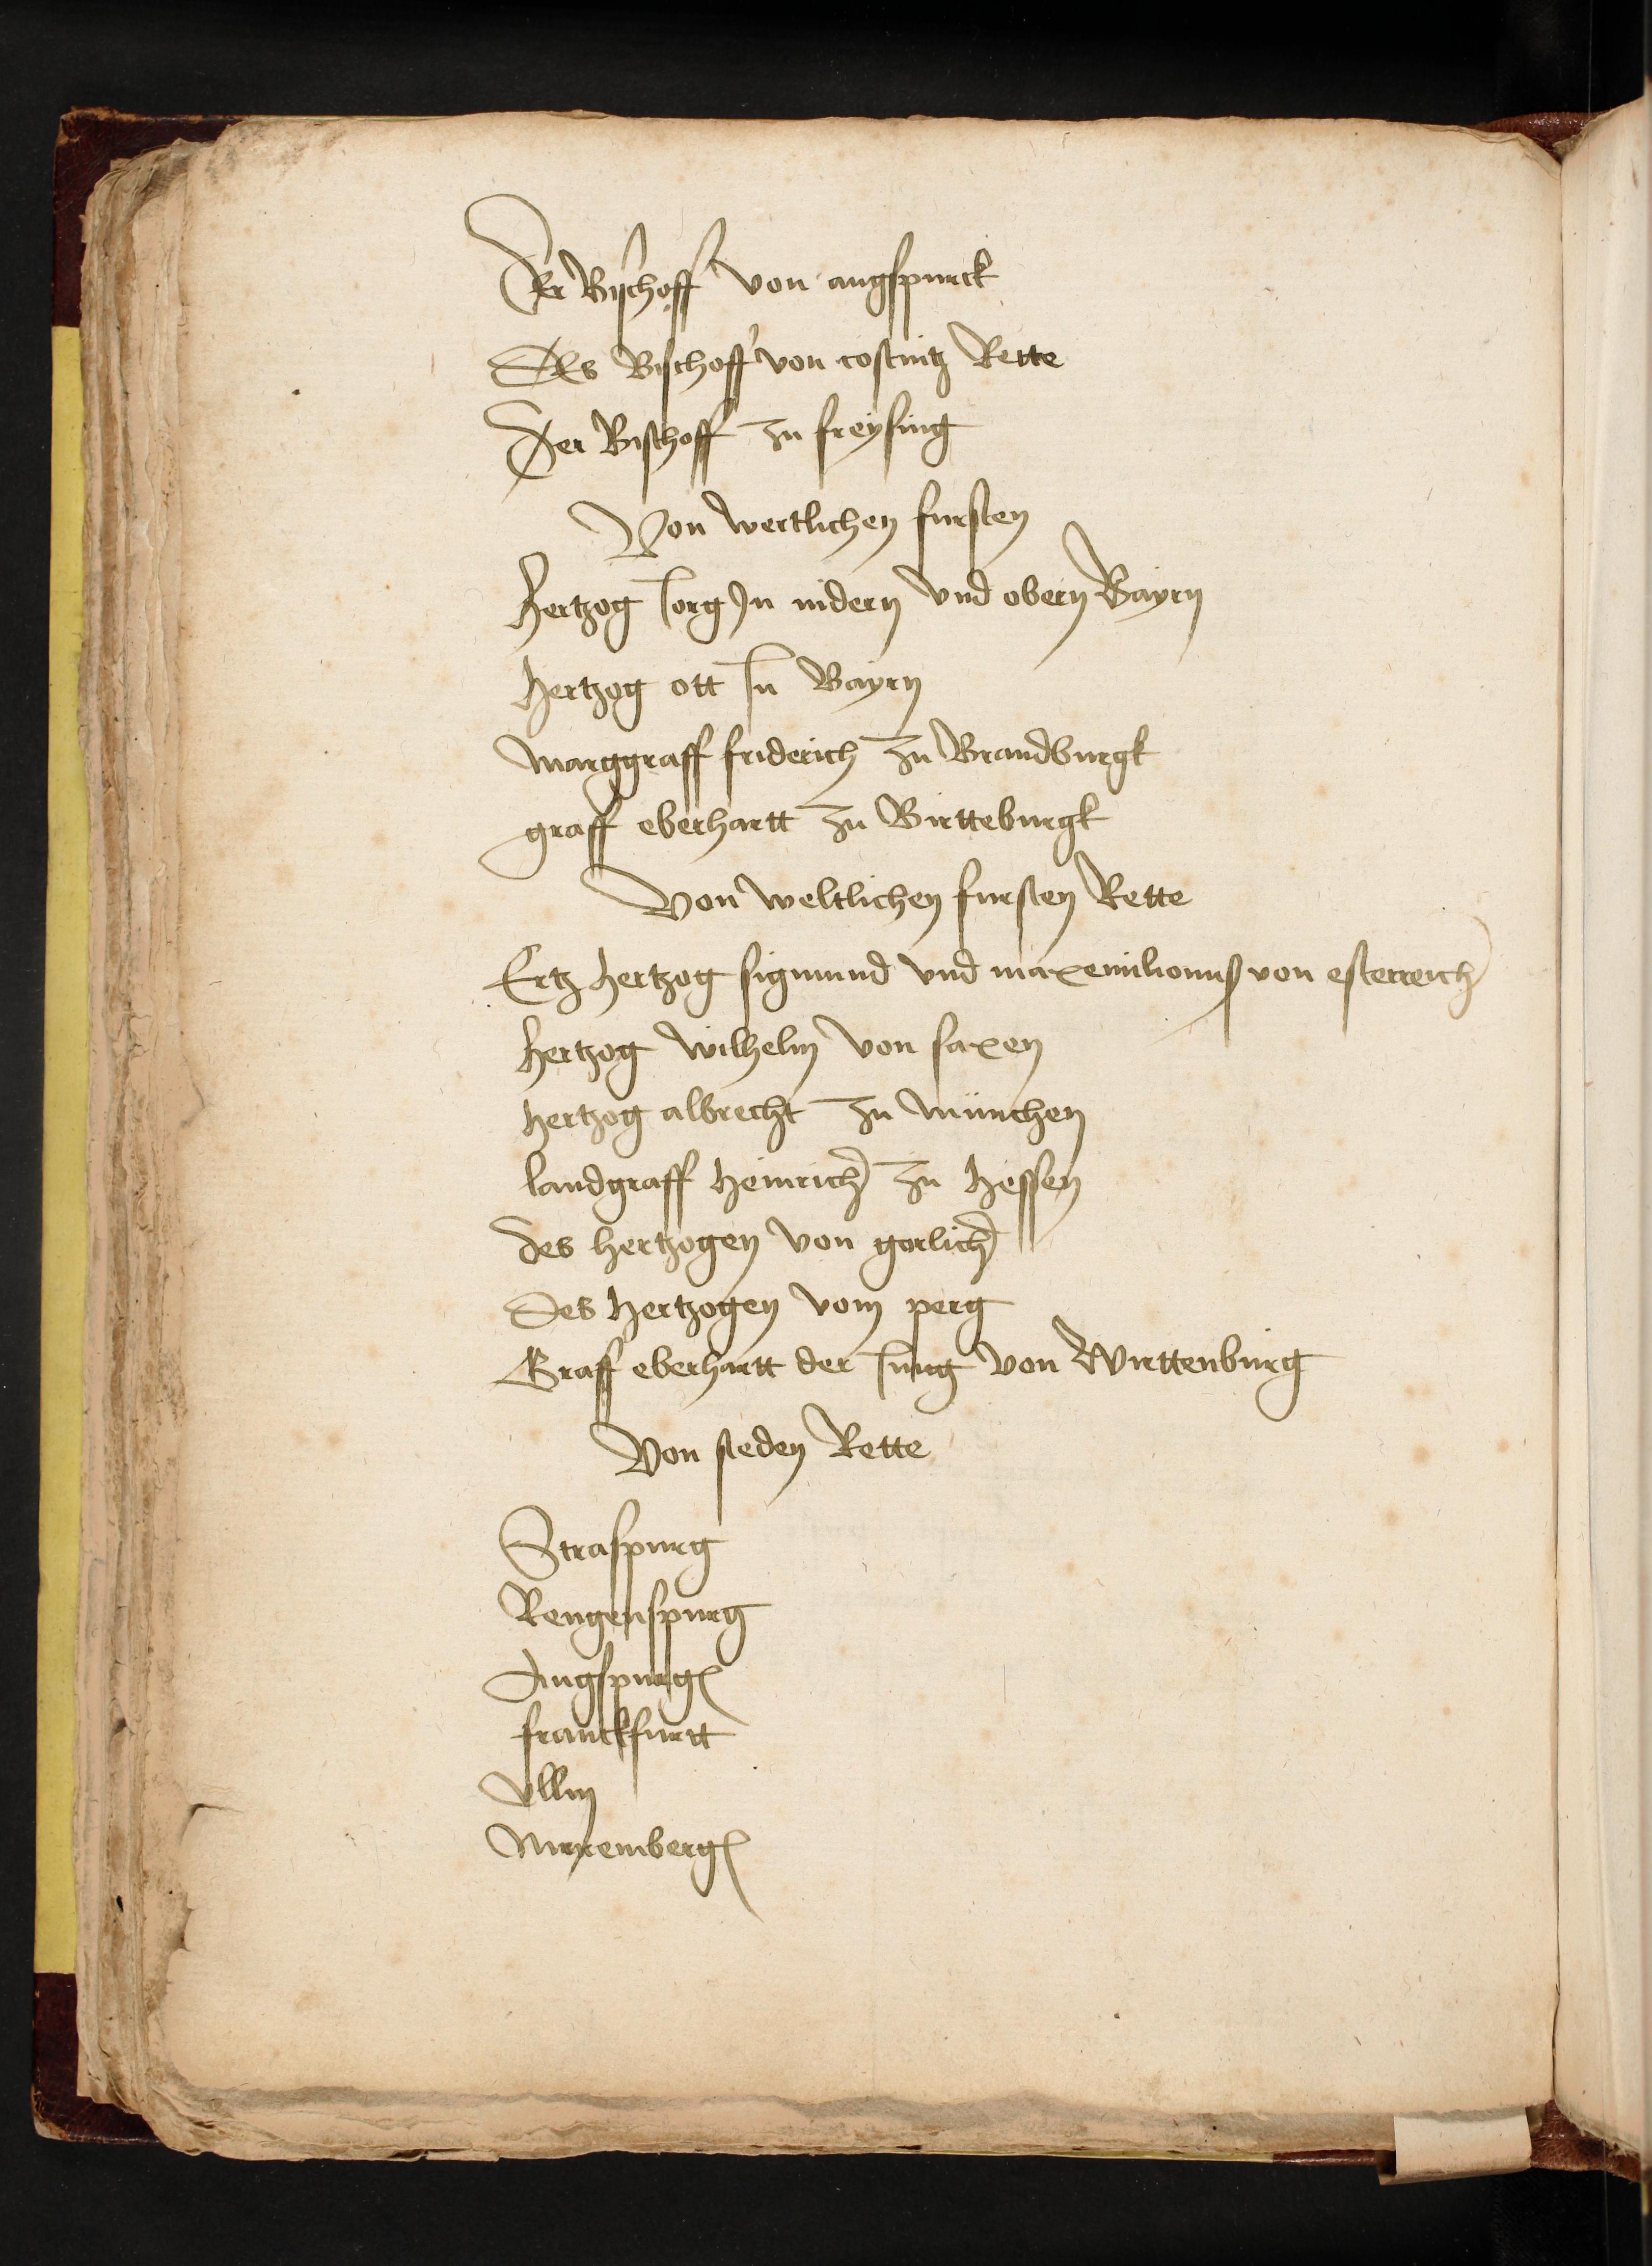 Der Bischoff von augspurck
Des Bischoff von costnitz Rette
Der Bischoff zu freysing
Von wertlichen fursten
Hertzog Jorg Jn nidern vnd obern Bayrn
Hertzog ott Jn Bayrn
Marggraff friderich zu Brandburgk
graff eberhartt zu Birtteburgk
Von weltlichen fursten Rette
Ertz hertzog sigmund vnd maxemilionus von esterreich
Hertzog wilhelm von saxen
Hertzog albrecht zu munchen
landgraff Heinrich zu Hessen
des Hertzogen von gorlich
Des Hertzogen vom perg
Graff eberhartt der Jung von Wirttenburg
Von steden Rette
Straspurg
Rengenspurg
Augspurg
franckfurtt
Vllm
Nuremberg